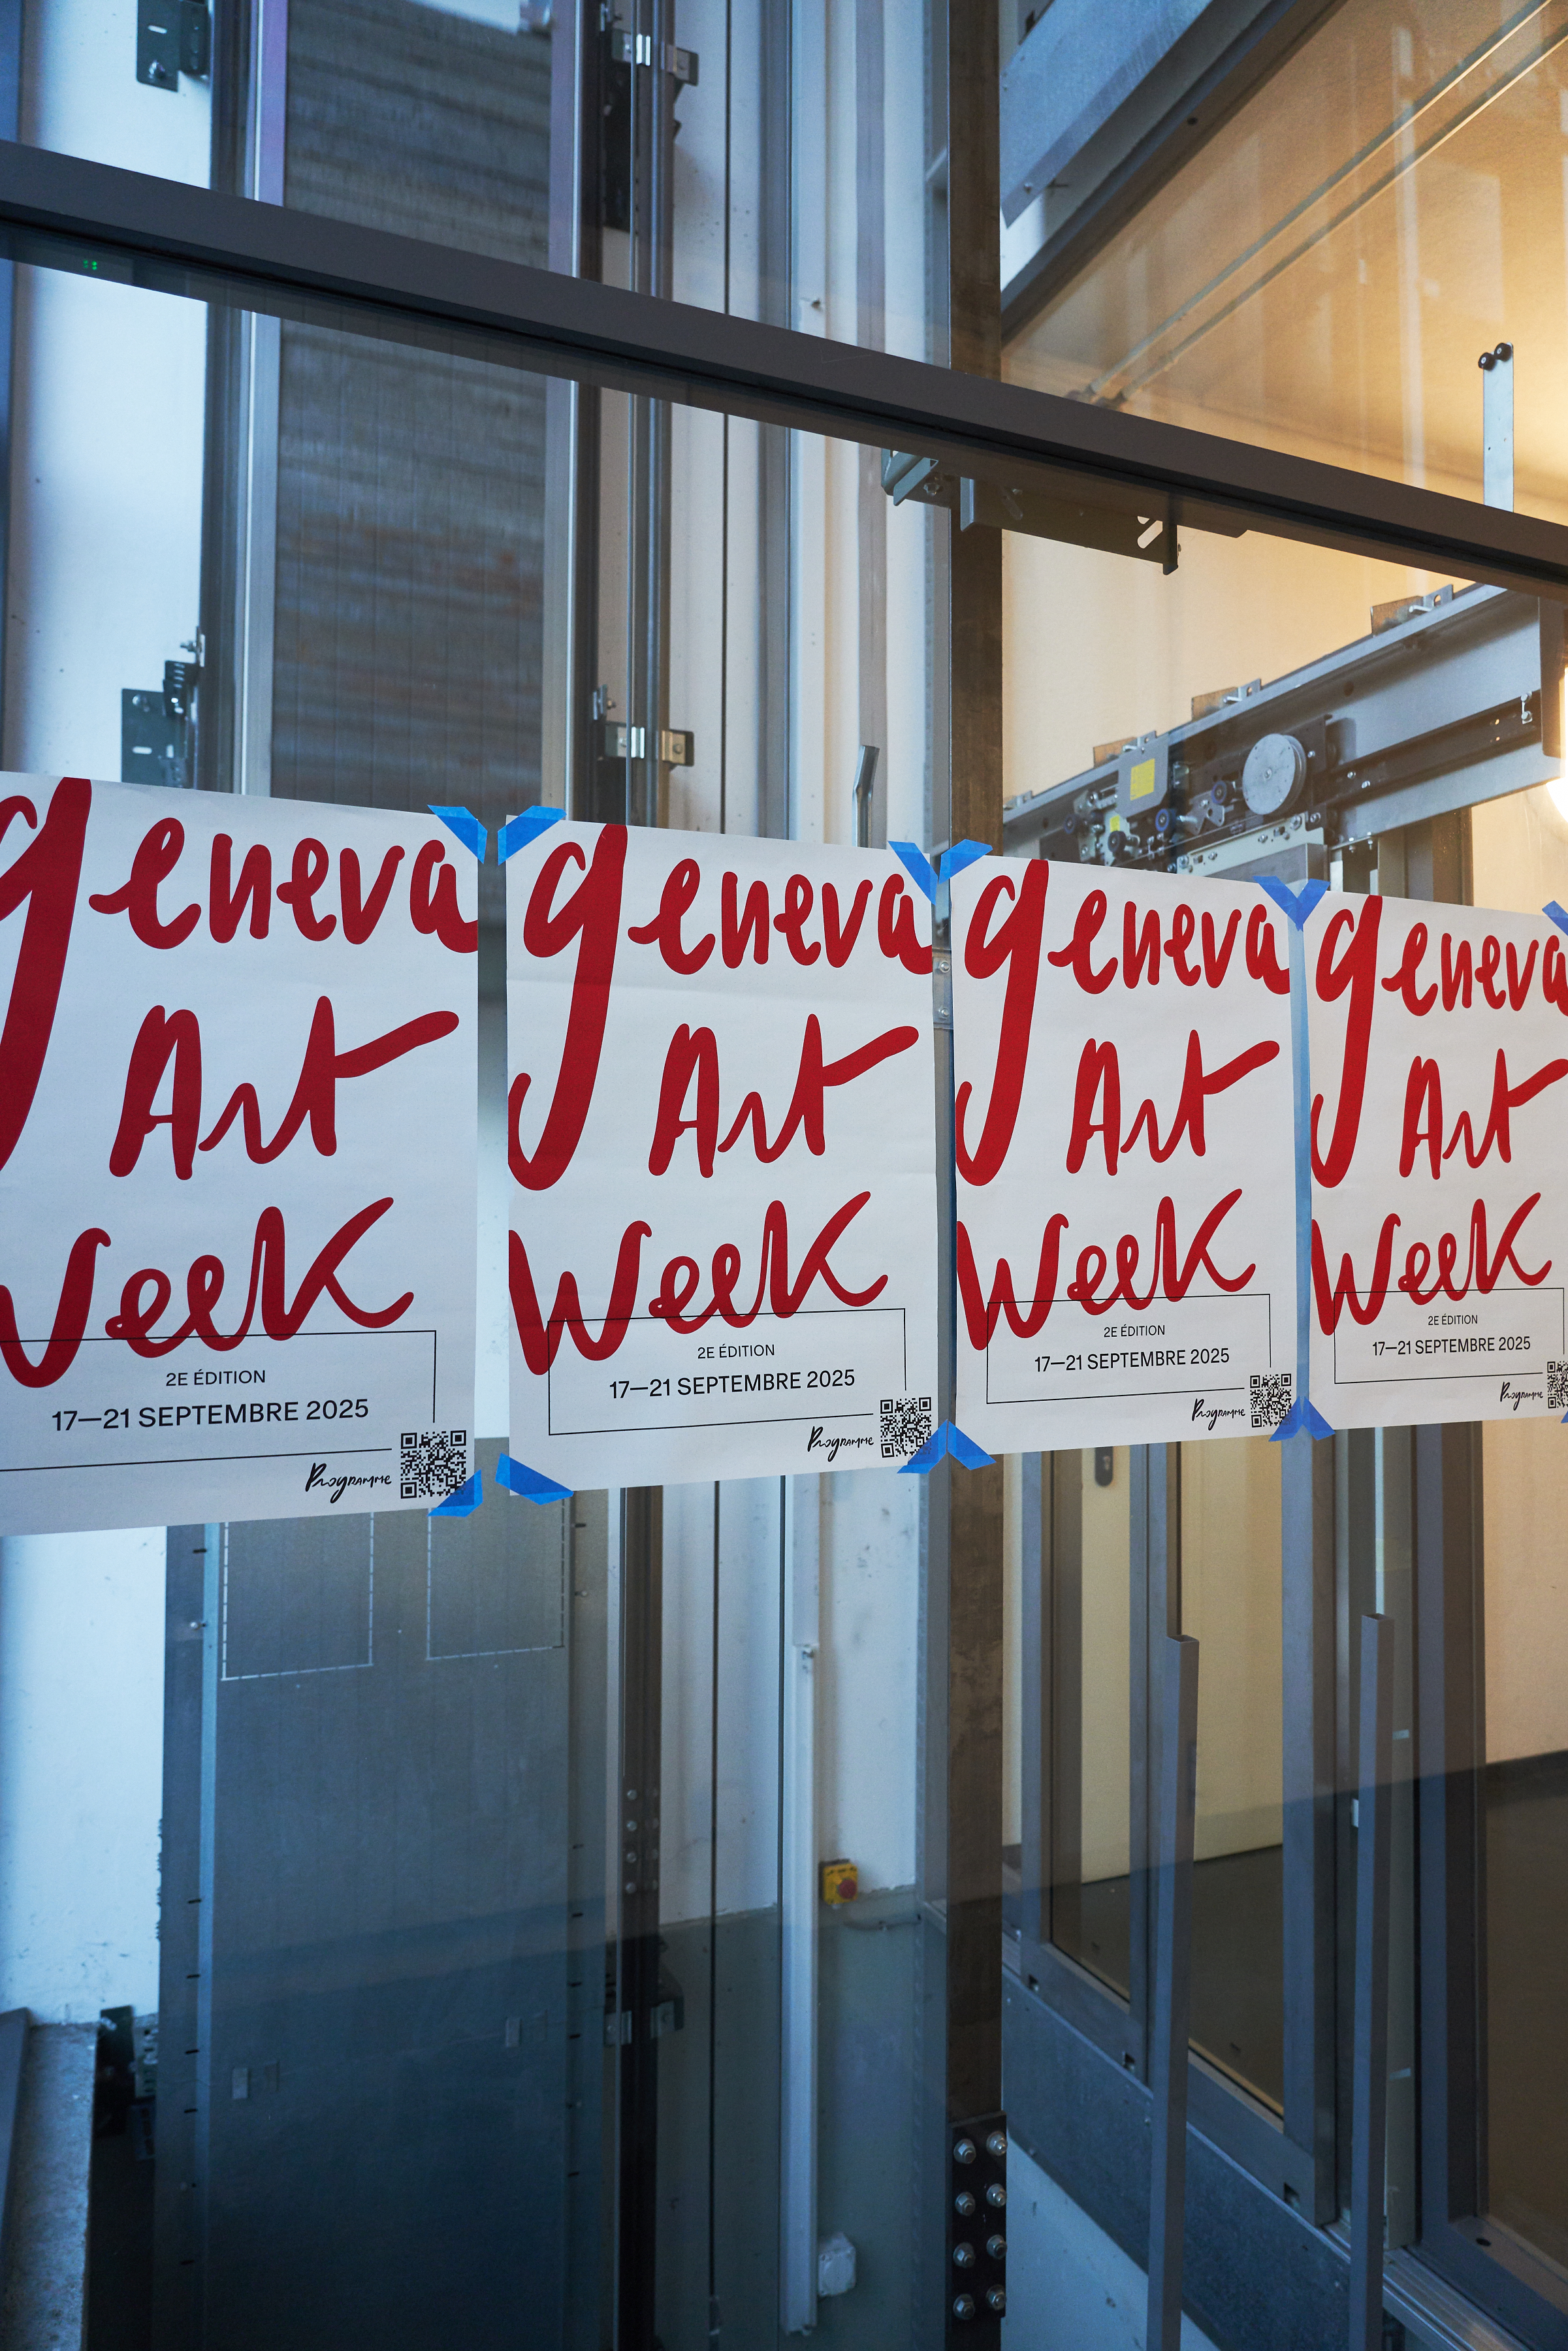 geneva
Art
Week
2E ÉDITION
17—21 SEPTEMBRE 2025
Programme
geneva
Art
Week
2E ÉDITION
17—21 SEPTEMBRE 2025
Programme
geneva
Art
Week
2E ÉDITION
17—21 SEPTEMBRE 2025
Programme
geneva
Art
Week
2E ÉDITION
17—21 SEPTEMBRE 2025
Programme